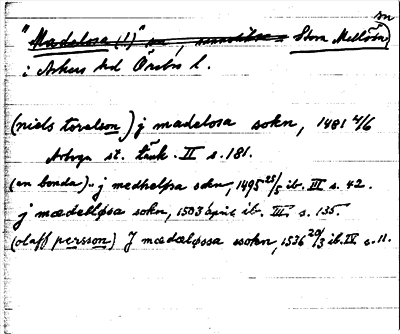 sn
"Madelosa (!)" Stora Mellösa,
i Askers hd Örebro l.
(niels toralson) j madelosa sokn, 1481 4/6
Arboga st. tänk. II s. 181.
(en bonda).. j medhelpsa sokn, 1495 25/5 ib. III s. 42.
j mædelløsa sokn, 1503 april ib. III. s. 135.
(olaff persson) J mædeløssa ssokn, 1536 20/3 ib. IV s. 11.